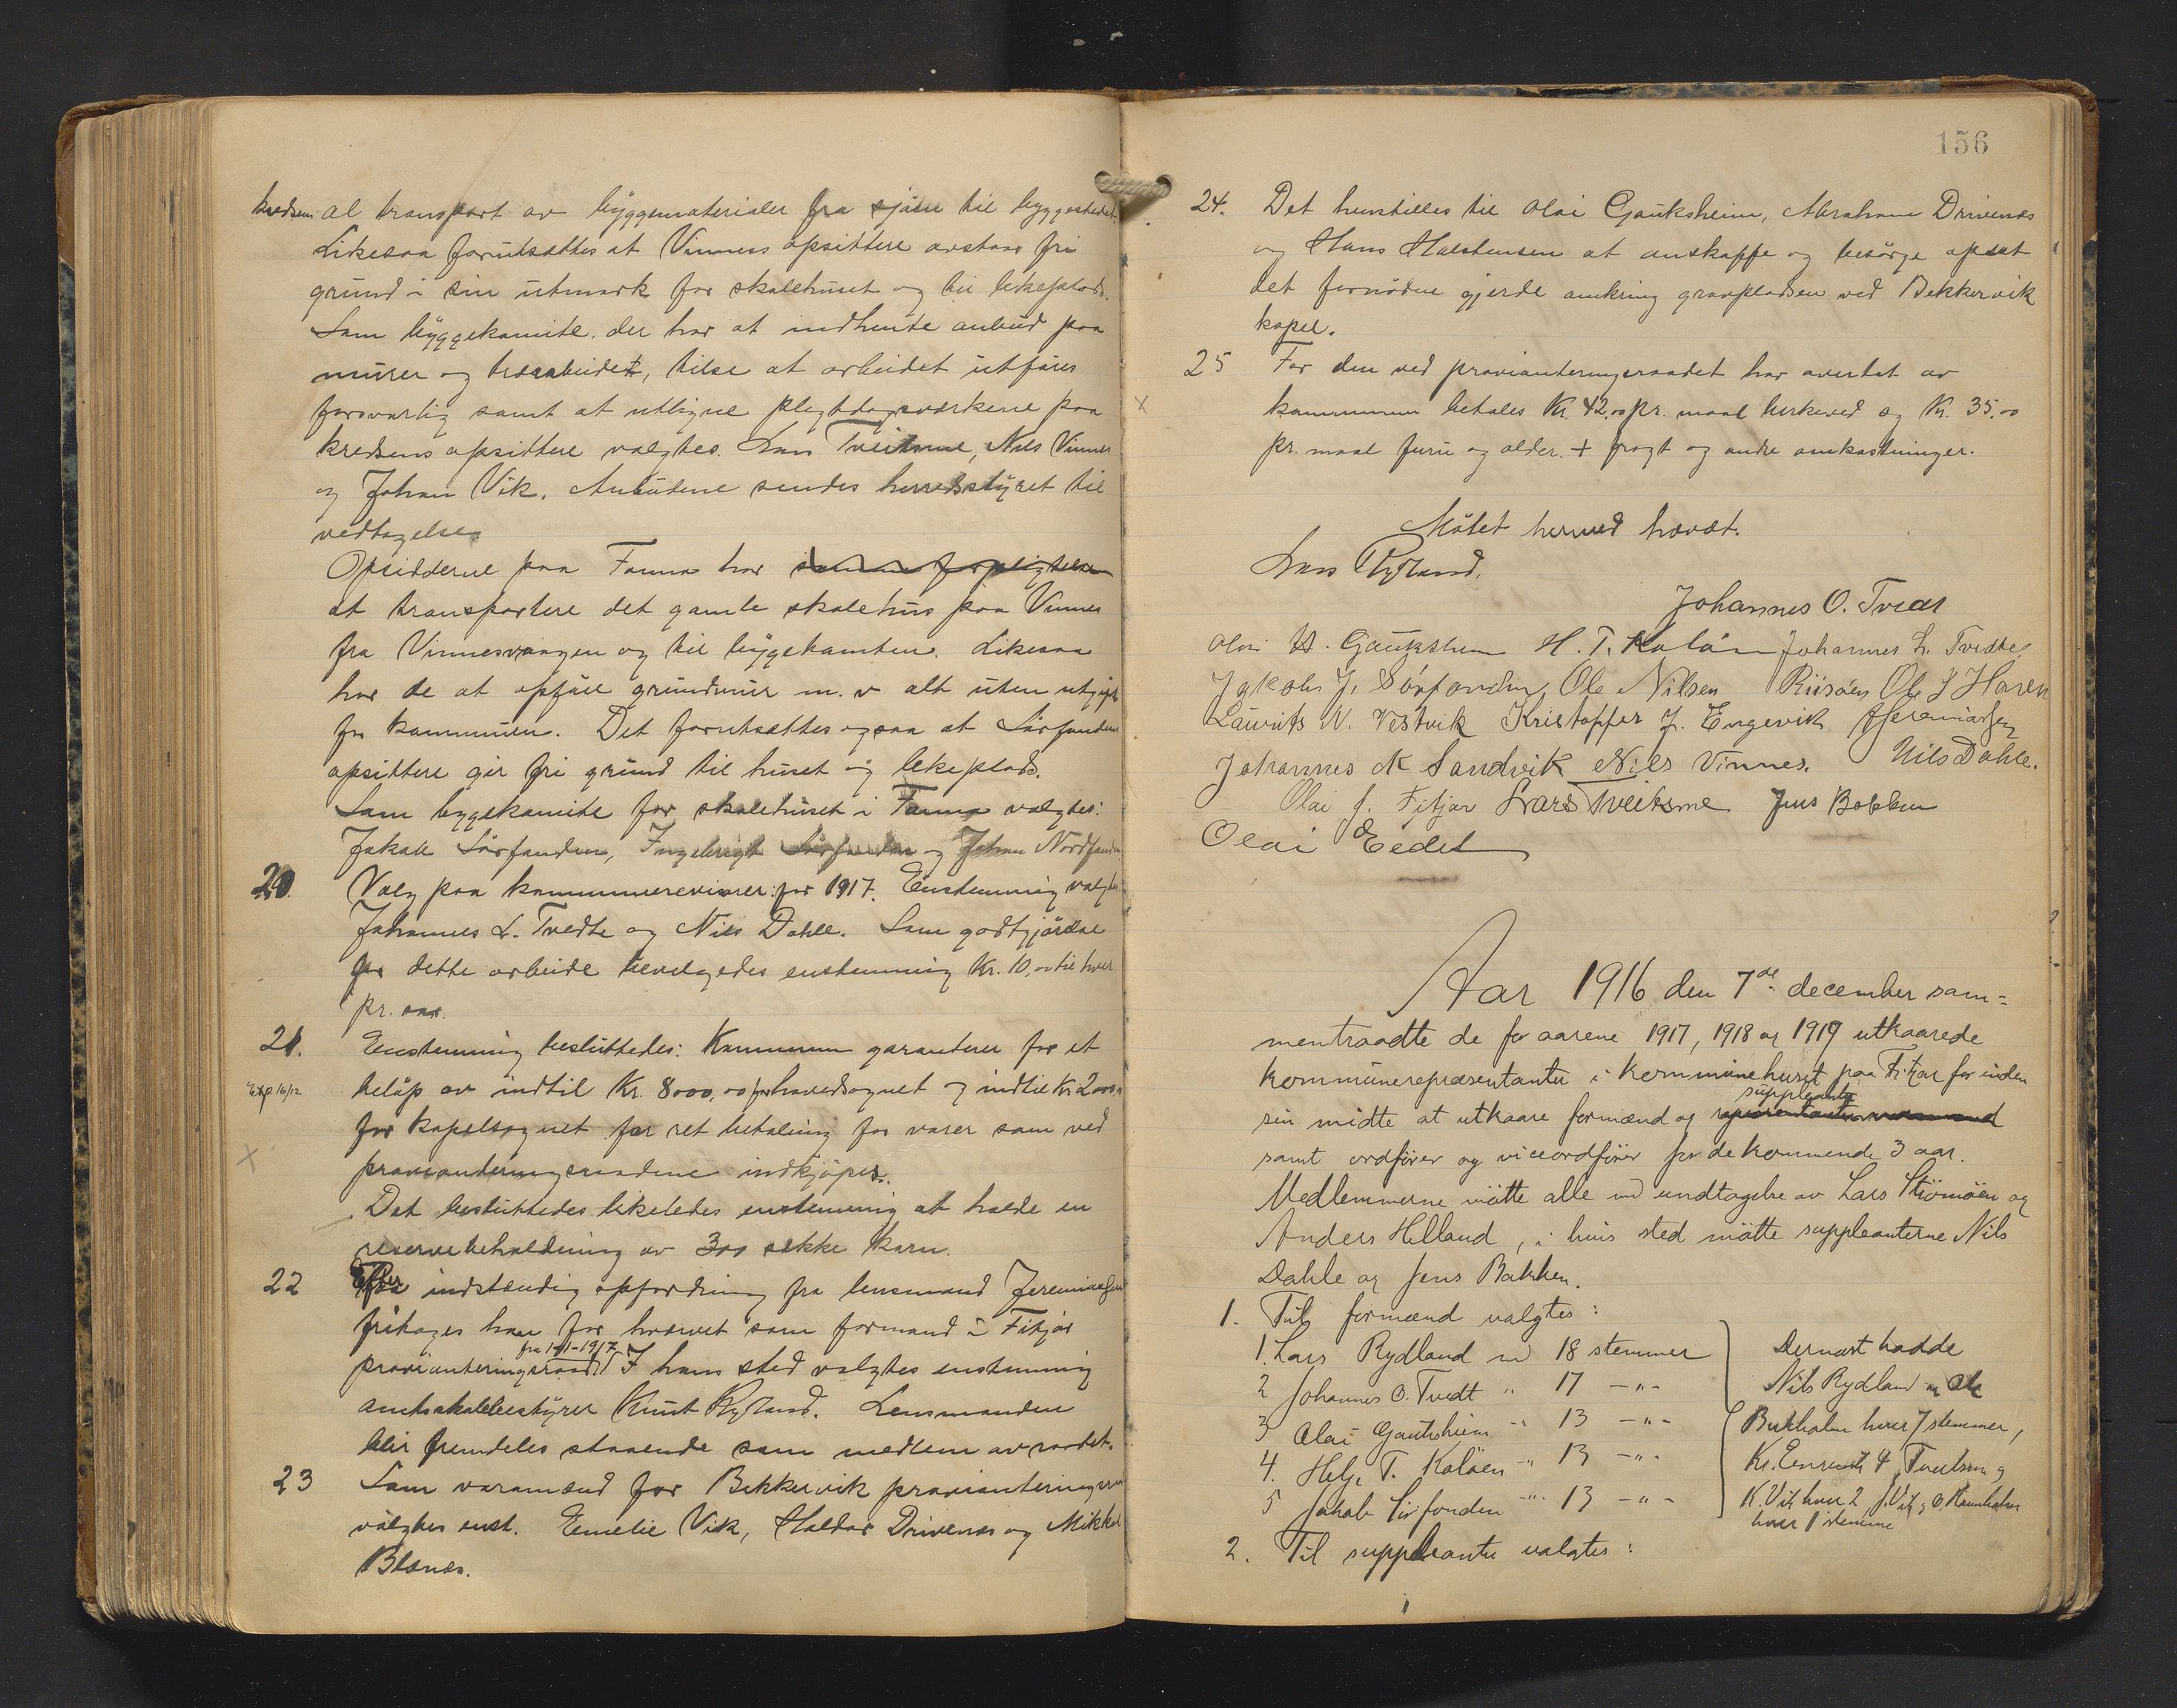 kredsen al transport av byggematerialer fra sjöen til byggestedet.
Likesaa forutsættes at Vinnes opsittere avstaar fri
grund i sin utmark for skolehuset og til lekeplads.
Som byggekomite, der har at indhente anbud paa
murer og træarbeidet, tilse at arbeidet utföres
forsvarlig samt at utligne pligtdagsverkene paa
kredsens opsittere valgtes. Lars Tveitsme, Nils Vinnes
og Johan Vik. Anbudene sendes herredsstyret til
vedtagelse.
Opsidderne paa Fonna har samme forpligtelse
at transportere det gamle skolehus paa Vinnes
fra Vinnesvaagen og til byggetomten. Likesaa
har de at opföre grundmur m. v alt uten utgift
for kommunen. Det forutsættes ogsaa at Sörfonden
opsittere gir fri grund til huset og lekeplads.
Som byggekomite for skolehuset i Fonna valgtes:
Jakob Sörfonden, Ingebrigt Sörfonden og Johan Nordfonden
20. Valg paa kommunerevisorer for 1917. Enstemmig valgtes
Johannes L. Tvedte og Nils Dahle. Som godtgjörelse
for dette arbeide bevilgedes enstemmig Kr. 10,00 til hver
pr. aar.
21. Enstemmig besluttedes: Kommunen garanterer for et
Exp. 16/12 belöp av indtil Kr. 8000,00 for hovedsognet og indtil Kr 2000,00
for kapelsognet for ret betaling for varer som ved
provianteringsraadene indkjöpes.
Det besluttedes likeledes enstemmig at holde en
reservebeholdning av 300 sække korn.
22 Efter indstændig opfordring fra lensmand Jeremiassen
fritages han for hvervet som formand i Fitjar
fra 1-1-1917
provianteringsraad. I hans sted valgtes enstemmig
amtsskolebestyrer Knut Rydland. Lensmanden
blir fremdeles staaende som medlem av raadet.
23 Som varamænd for Bekkervik provianteringsraad
valgtes enst. Emelie Vik, Haldor Drivenes og Mikkel
Blænes.
156
24. Det henstilles til Olai Gauksheim, Abraham Drivenes
og Hans Halstensen at anskaffe og besörge opsat
det fornödne gjerde omkring gravpladsen ved Bekkervik
kapel.
25 For den ved provianteringsraadet har overtat av
kommunen betales Kr. 42,00 pr. maal birkeved og Kr. 35,00
pr. maal furu og older. + fragt og andre omkostninger.
Mötet hermed hævet.
Lars Rydland.
Johannes O. Tvedt
Olai A. Gauksheim H. T. Kalöen Johannes L. Tvedte
Jakob J. Sörfonden, Ole Nilsen Risöen Ole J Haren
Laurits N. Vestvik Kristoffer J. Engevik Jeremiassen
Johannes K Sandvik Nils Vinnes. Nils Dahle.
Olai J. Fitjar Lars Tveitsme Jens Bakken
Olai Eide
Aar 1916 den 7de december sam=
mentraadte de for aarene 1917, 1918 og 1919 utkaarede
kommunerepræsentanter i kommunehuset paa Fitjar for inden
suppleanter
sin midte at utkaare formænd og
samt ordförer og viceordförer for de kommende 3 aar.
Medlemmerne mötte alle med undtagelse av Lars Strömöen og
Anders Helland, i hvis sted mötte suppleanterne Nils
Dahle og Jens Bakken.
1. Til formænd valgtes:
1. Lars Rydland md 18 stemmer
2 Johannes O. Tvedt " 17 -"-
3 Olai Gauksheim " 13 -"-
4. Helje T. Kalöen " 13 -"-
5 Jakob Sörfonden " 13 -"-
Dernæst hadde
Nils Rydland og Ole
Bukholm hver 7 stemmer,
Kr. Engevik 4, Tveitsme og
K. Vik hver 2 J. Vik og O.
hver 1 stemme
2. Til suppleanter valgtes: